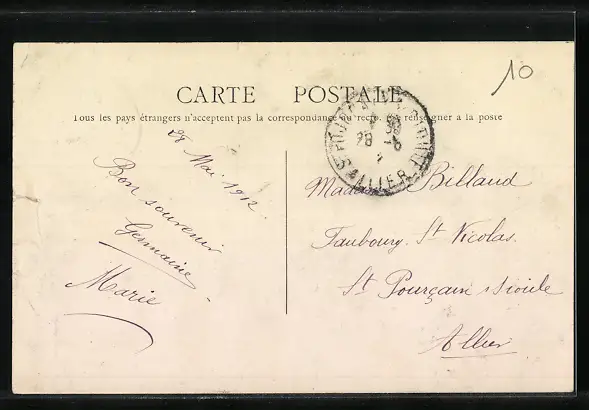 10
CARTE POSTALE
Tous les pays étrangers n'acceptent pas la correspondance au recto. Se renseigner à la poste
28 Mai 1912
Bon souvenir
Germaine
Marie
Madame Billaud
Faubourg St Nicolas.
St Pourçain s/Sioule
Allier
ALLIER